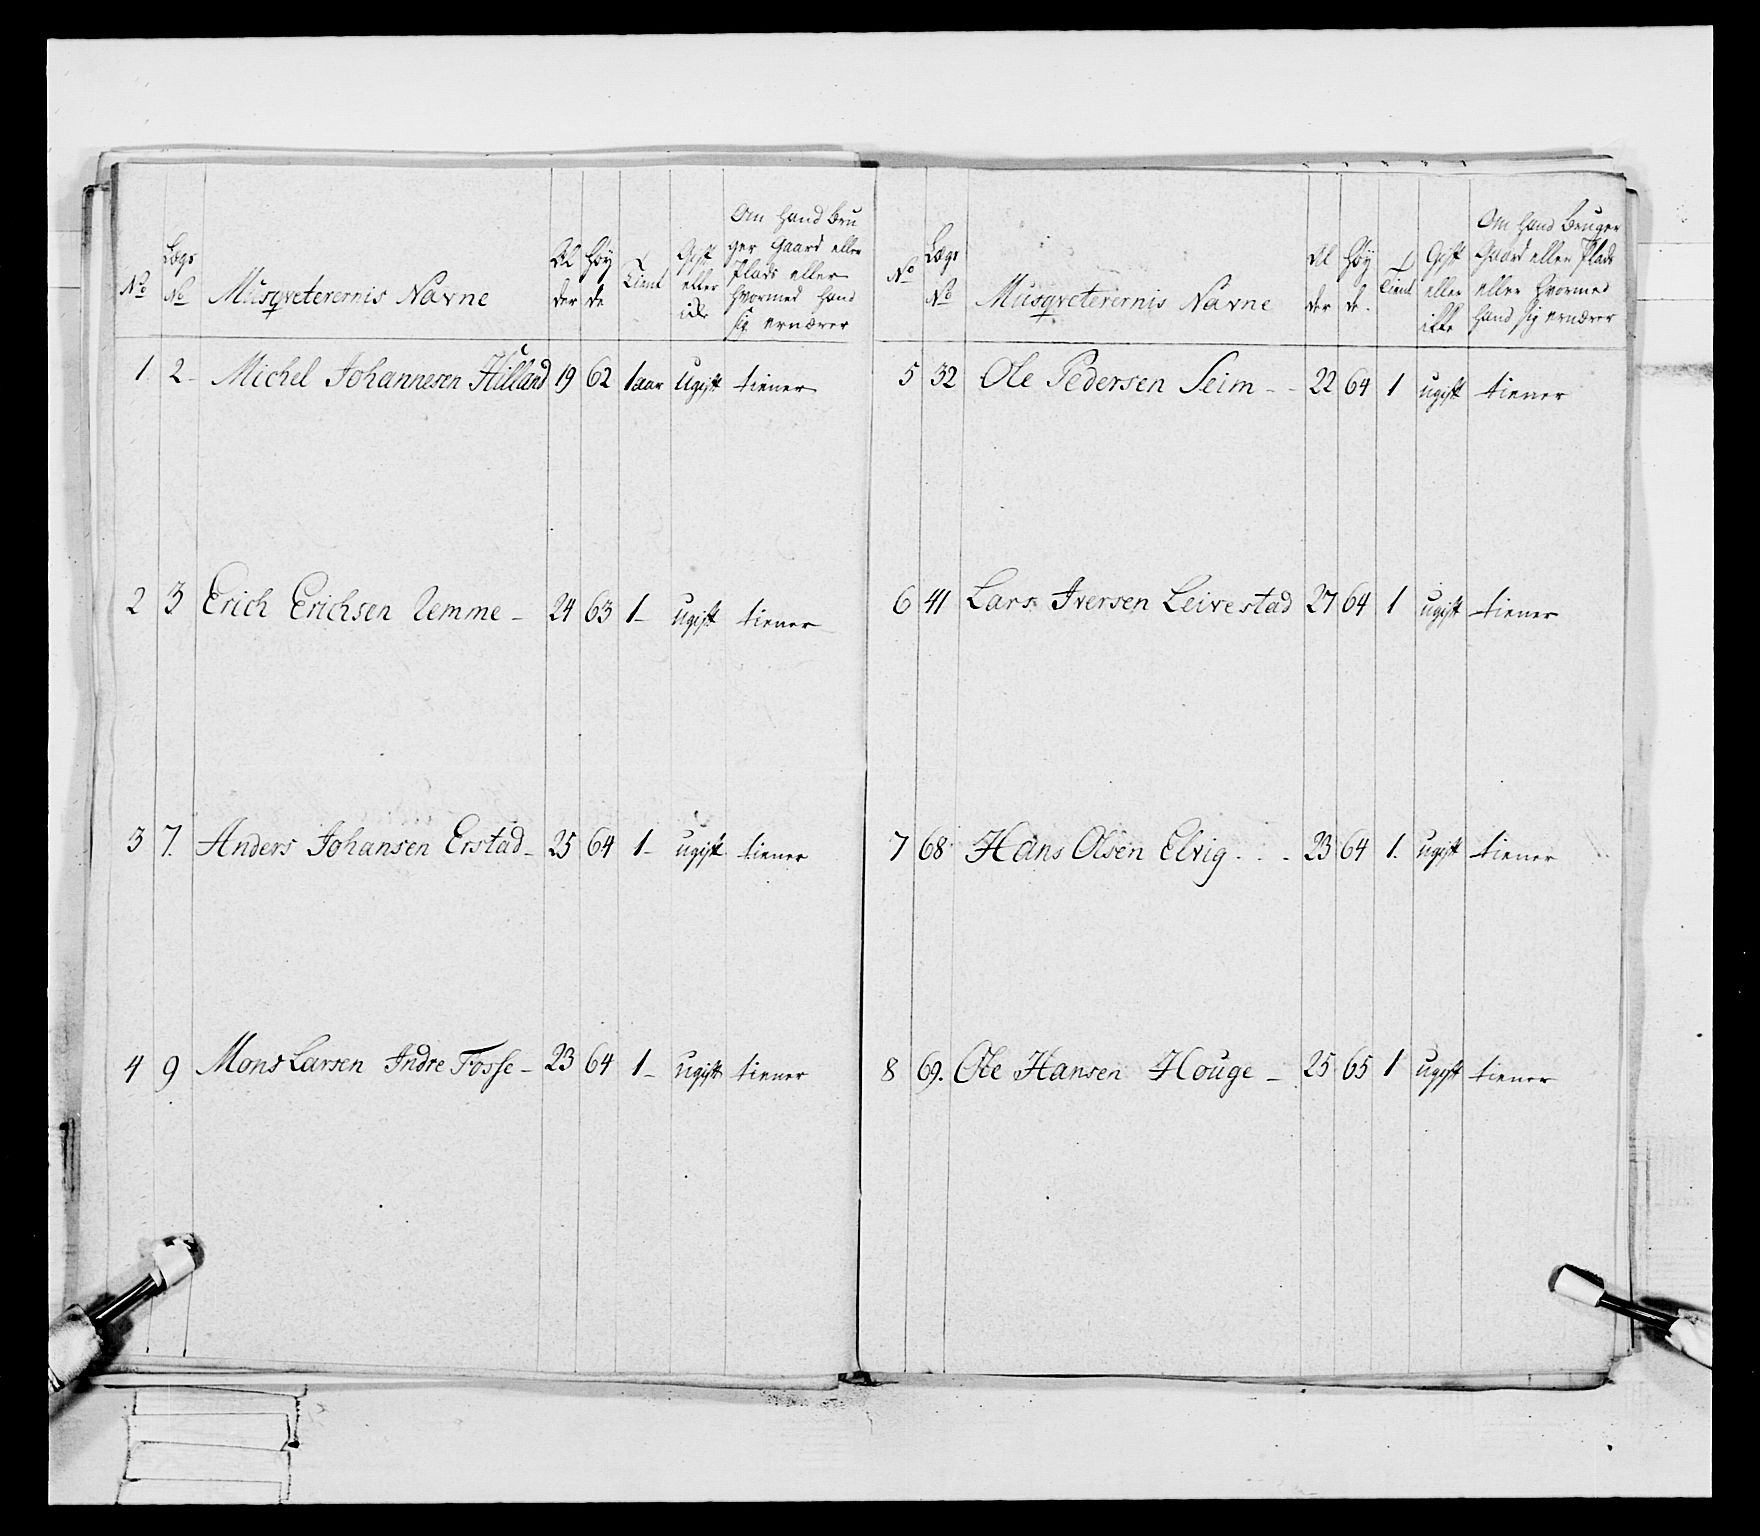 No Lægs No Musqveterernis Navne Alder Høyde Tient Gift eller ick Om Hand Bruger Gaard eller Plads eller Hvormed Hand sig ernærer
1 2 Michel Johannesen Hilland 19 62 1 aar Ugift tiener
2 3 Erich Erichsen Uemme 24 63 1 ugift tiener
3 7. Anders Johansen Erstad 25 64 1 ugift tiener
4 9 Mons Larsen Indre Fosse 23 64 1 ugift tiener
No Lægs No Musqveterernis Navne Alder Høyde. Tient Gift eller ikke Om Hand Bruger Gaard eller Plads eller Hvormed Hand sig ernærer
5 32 Ole Pedersen Seim 22 64 1 ugift tiener
6 41 Lars Iversen Leivestad 27 64 1 ugift tiener
7 68 Hans Olsen Elvig 23 64 1. ugift tiener
8 69. Ole Hansen Houge 25 65 1 ugift tiener